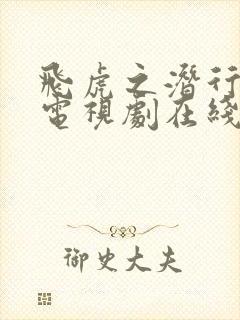 飛虎之潛行
電視劇在綫
御史大夫